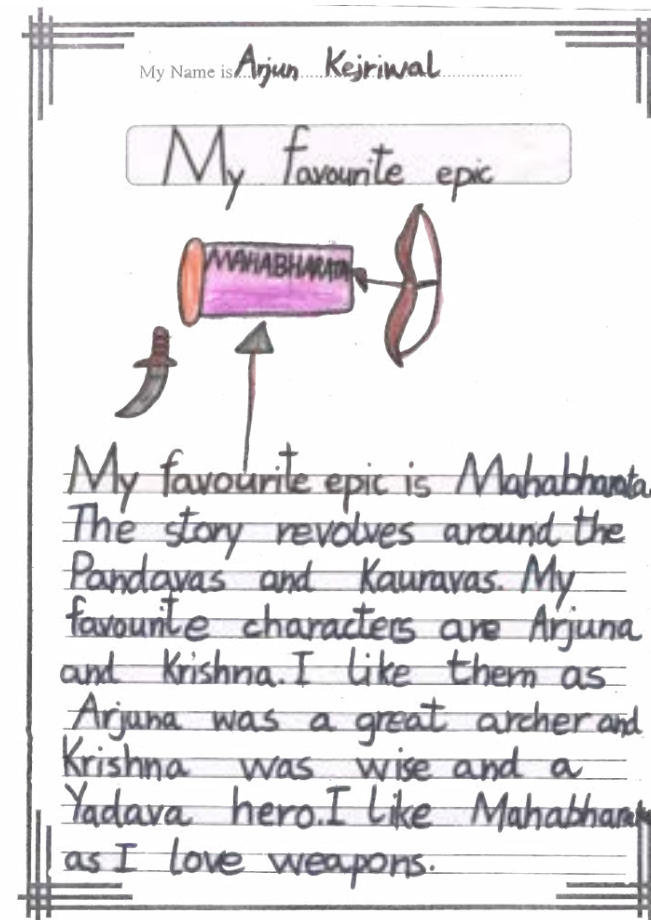 My Name is Arjun Kejriwal
My favourite epic
MAHABHARATA
My favourite epic is Mahabharata.
The story revolves around the
Pandavas and Kauravas. My
favourite characters are Arjuna
and Krishna. I like them as
Arjuna was a great archer and
Krishna was wise and a
Yadava hero. I like Mahabharata
as I love weapons.